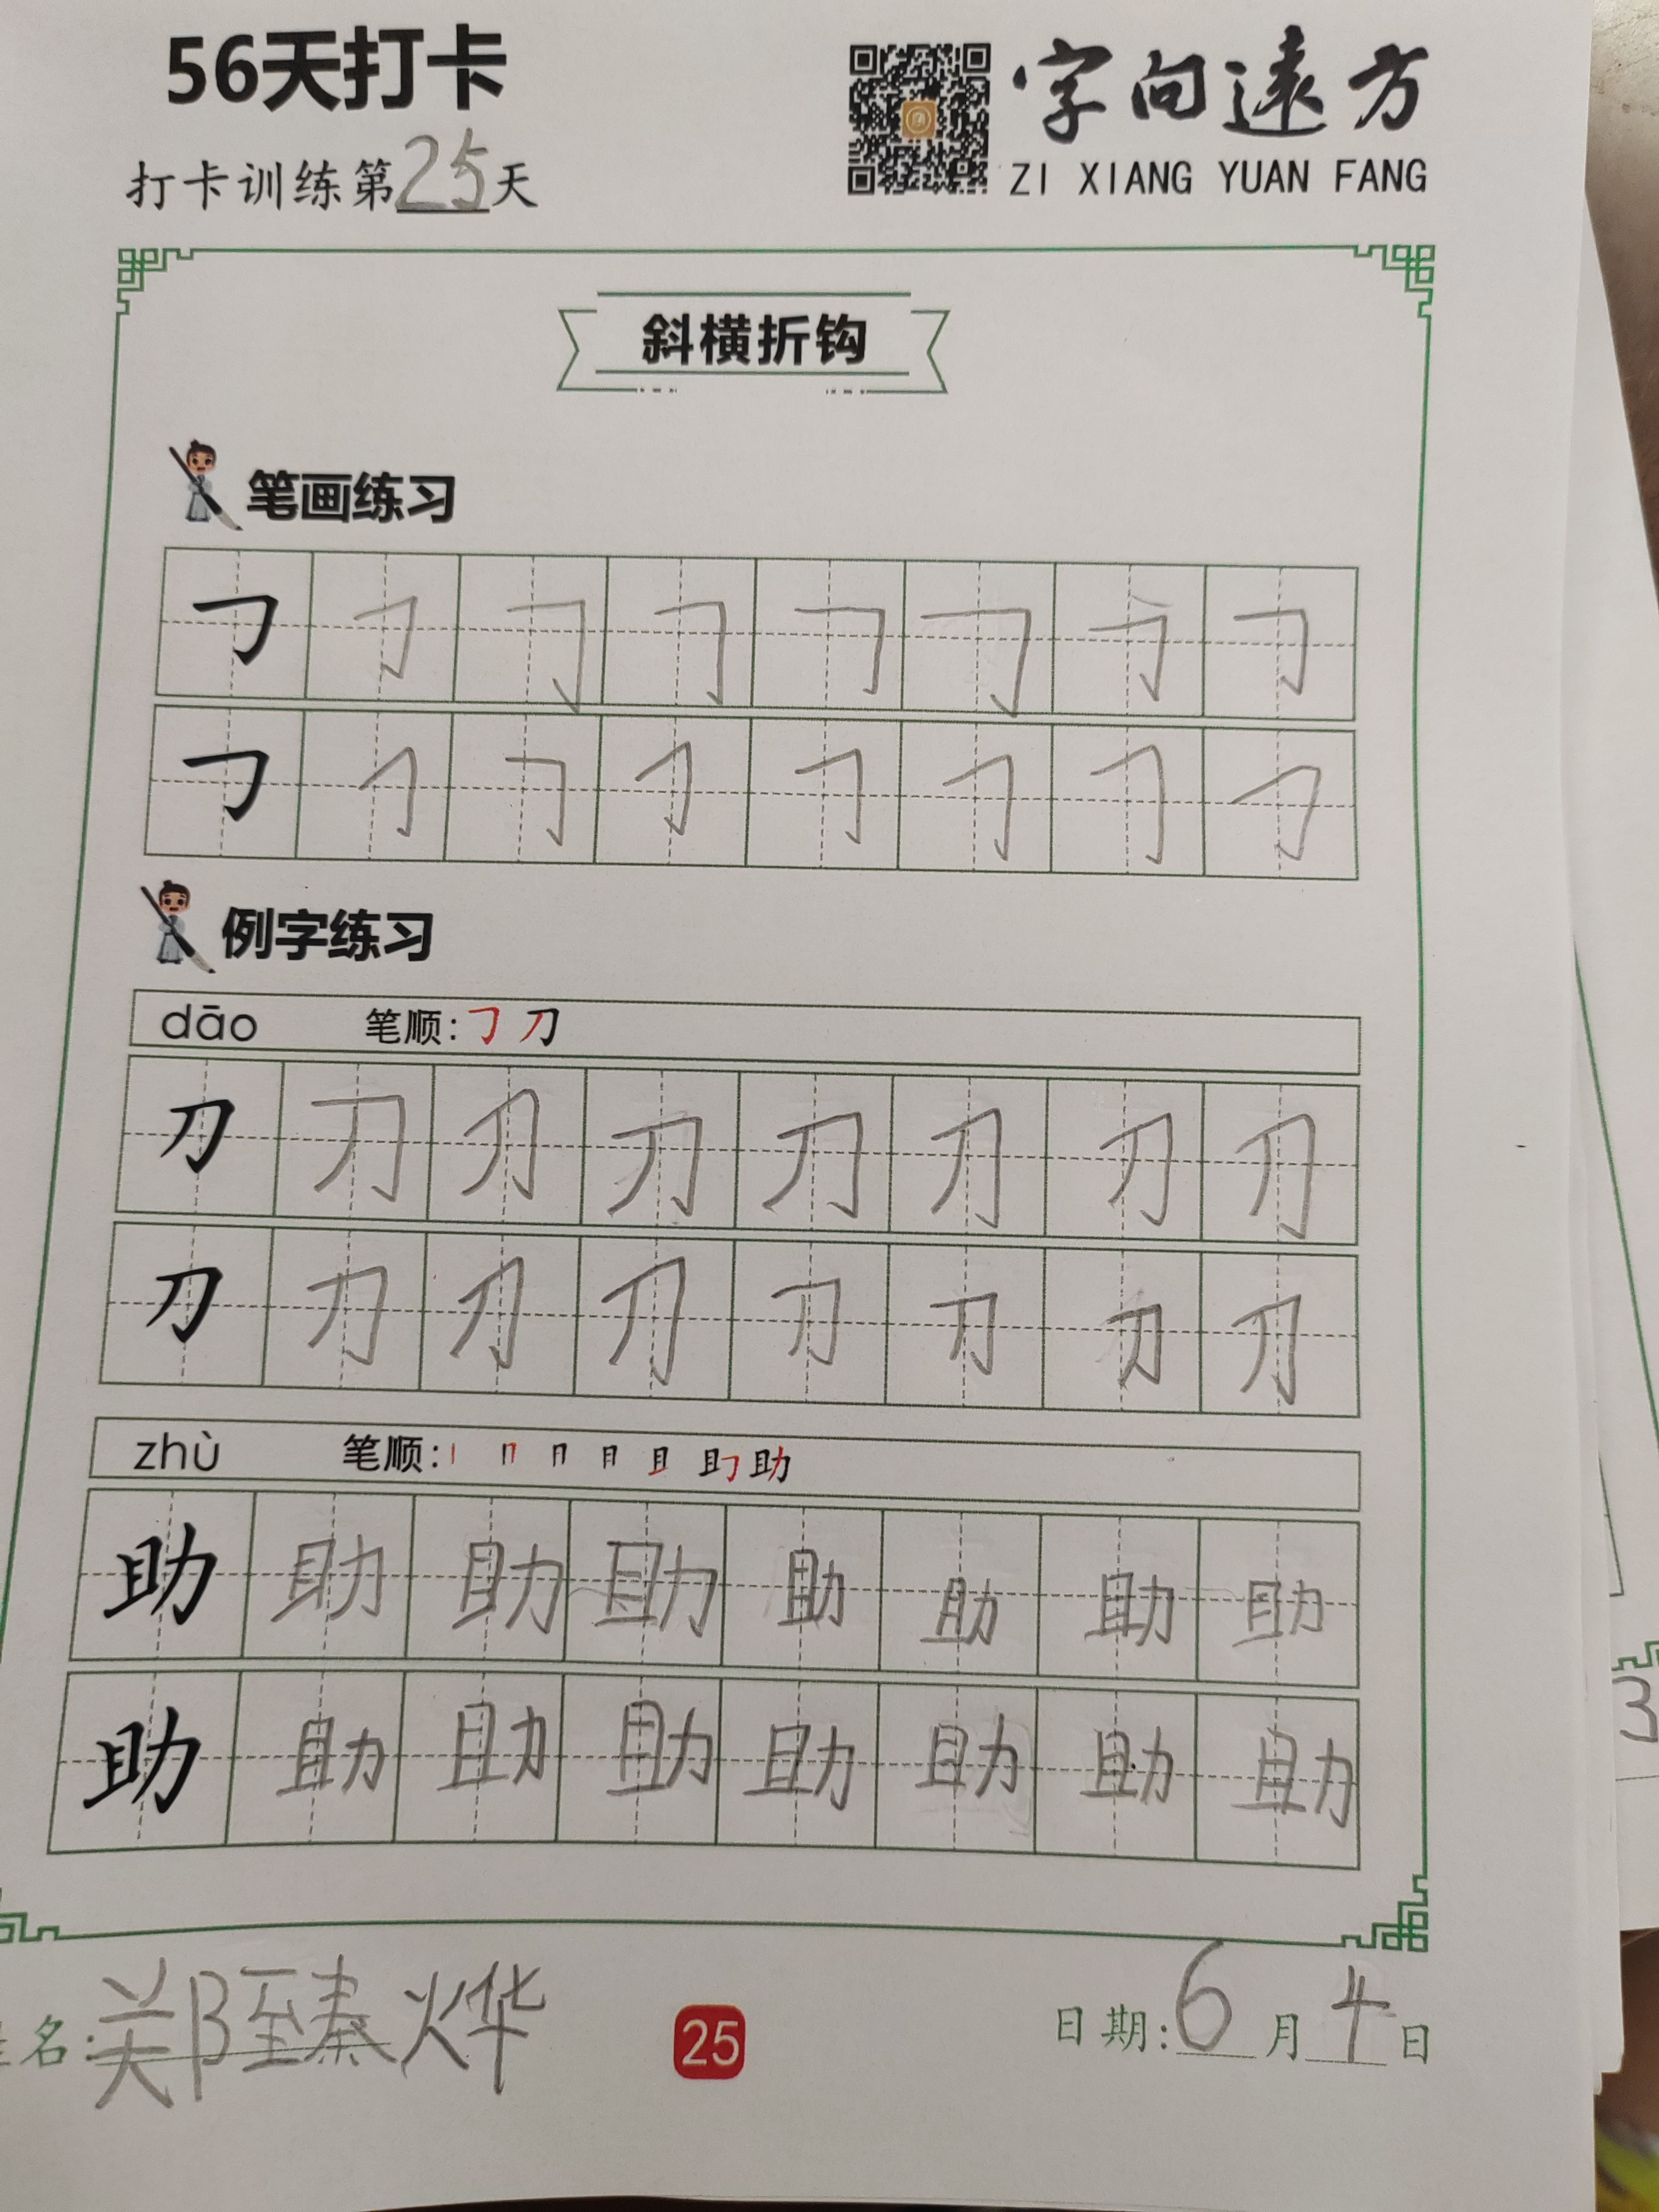 56天打卡
打卡训练第25天
字向遠方
ZI XIANG YUAN FANG
斜横折钩
笔画练习
例字练习
dāo 笔顺: 𠃌 刀
刀 刀 刀 刀 刀 刀 刀 刀
刀 刀 刀 刀 刀 刀 刀 刀
zhù 笔顺: 助
助 助 助 助 助 助 助 助
助 助 助 助 助 助 助 助
姓名: 郑臻烨
25
日期: 6月4日
3